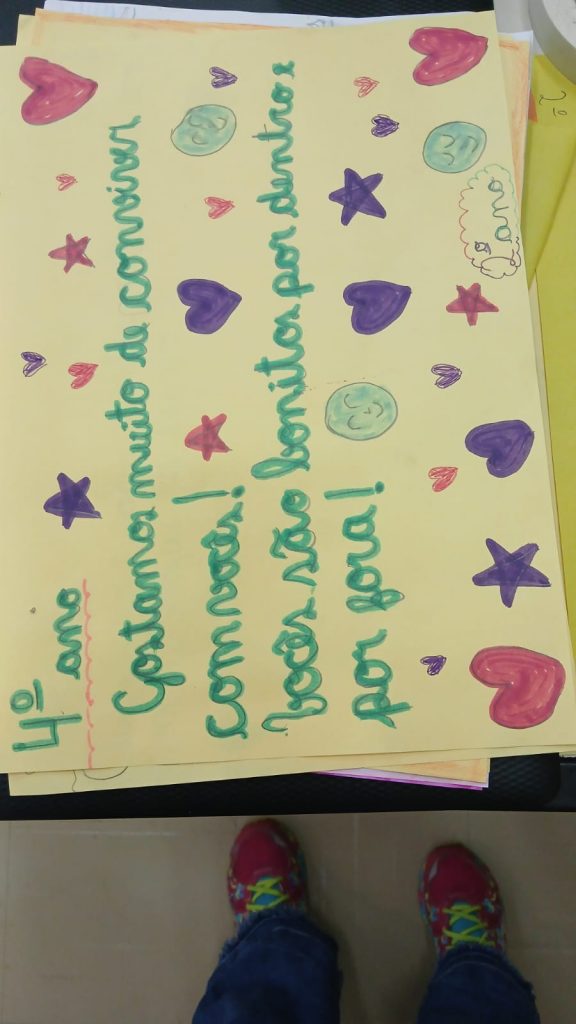 4º ano
Gostamos muito de conviver
com vocês!
Vocês são bonitos por dentro e
por fora!
ano
2º